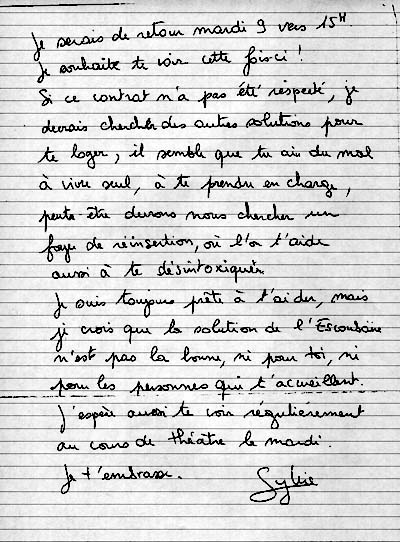 Je serais de retour mardi 9 vers 15H.
Je souhaite te voir cette fois-ci !
Si ce contrat n'a pas été respecté, je
devrais chercher des autres solutions pour
te loger, il semble que tu ais du mal
à vivre seul, à te prendre en charge,
peute-être devrons nous chercher un
foyer de réinsertion, où l'on t'aide
aussi à te désintoxiquer.
Je suis toujours prête à t'aider, mais
je crois que la solution de l'Escoubaïre
n'est pas la bonne, ni pour toi, ni
pour les personnes qui t'accueillent.
J'espère aussi te voir régulièrement
au cours de théâtre le mardi.
Je t'embrasse. Sylvie